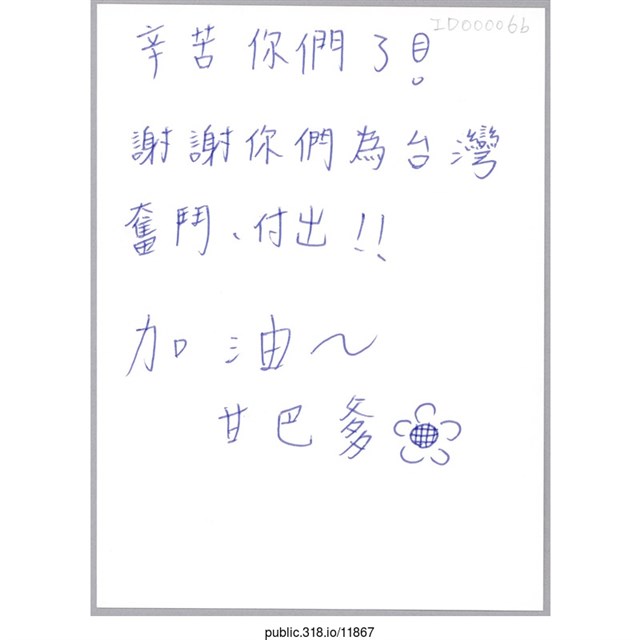 ID000066
辛苦你們了!
謝謝你們為台灣
奮鬥、付出!!
加油～
甘巴爹
public.318.io/11867